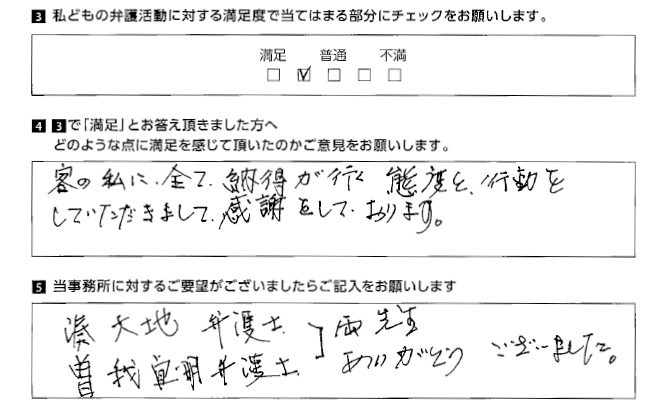 3 私どもの弁護活動に対する満足度で当てはまる部分にチェックをお願いします。
満足 普通 不満
□ ☑ □ □ □
4 3で「満足」とお答え頂きました方へ
どのような点に満足を感じて頂いたのかご意見をお願いします。
客の私に、全て、納得が行く 態度と、行動を
していただきまして、感謝をして、おります。
5 当事務所に対するご要望がございましたらご記入をお願いします
湊 大地 弁護士 両先生
曽我 卓明 弁護士 ありがとう ございました。